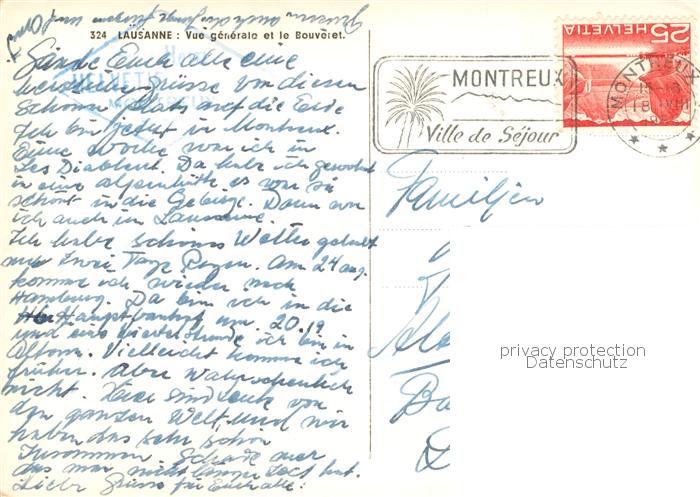 324 LAUSANNE : Vue générale et le Bouveret.
HELVETIA 25
MONTREUX
Ville de Séjour
MONTREUX
HELVETIA
Euch alle eine
von diesen
schönen Platz auf die Erde
Ich bin jetzt in Montreux.
Eine Woche war ich in
Les Diablerets. Da habe ich gewohnt
in eine es war so
schönt in die Gebirge. Dann war
ich auch in Lausanne.
Ich habe schönes Wetter gehabt
nur zwei Tage Regen. Am 24 aug.
komme ich wieder nach
Hamburg. Da bin ich in die
Hauptbanhof um 20.19
und eine viertelstunde ich bin in
Altona. Vielleicht komme ich
früher. Aber Wahrscheinlich
nicht. Hier sind Leute von
den ganzen Welt und wir
haben das sehr schön
zusammen. Schade nur
das man nicht Zeit hat.
Liebe Grüsse für Euch alle.
Familien
privacy protection
Datenschutz